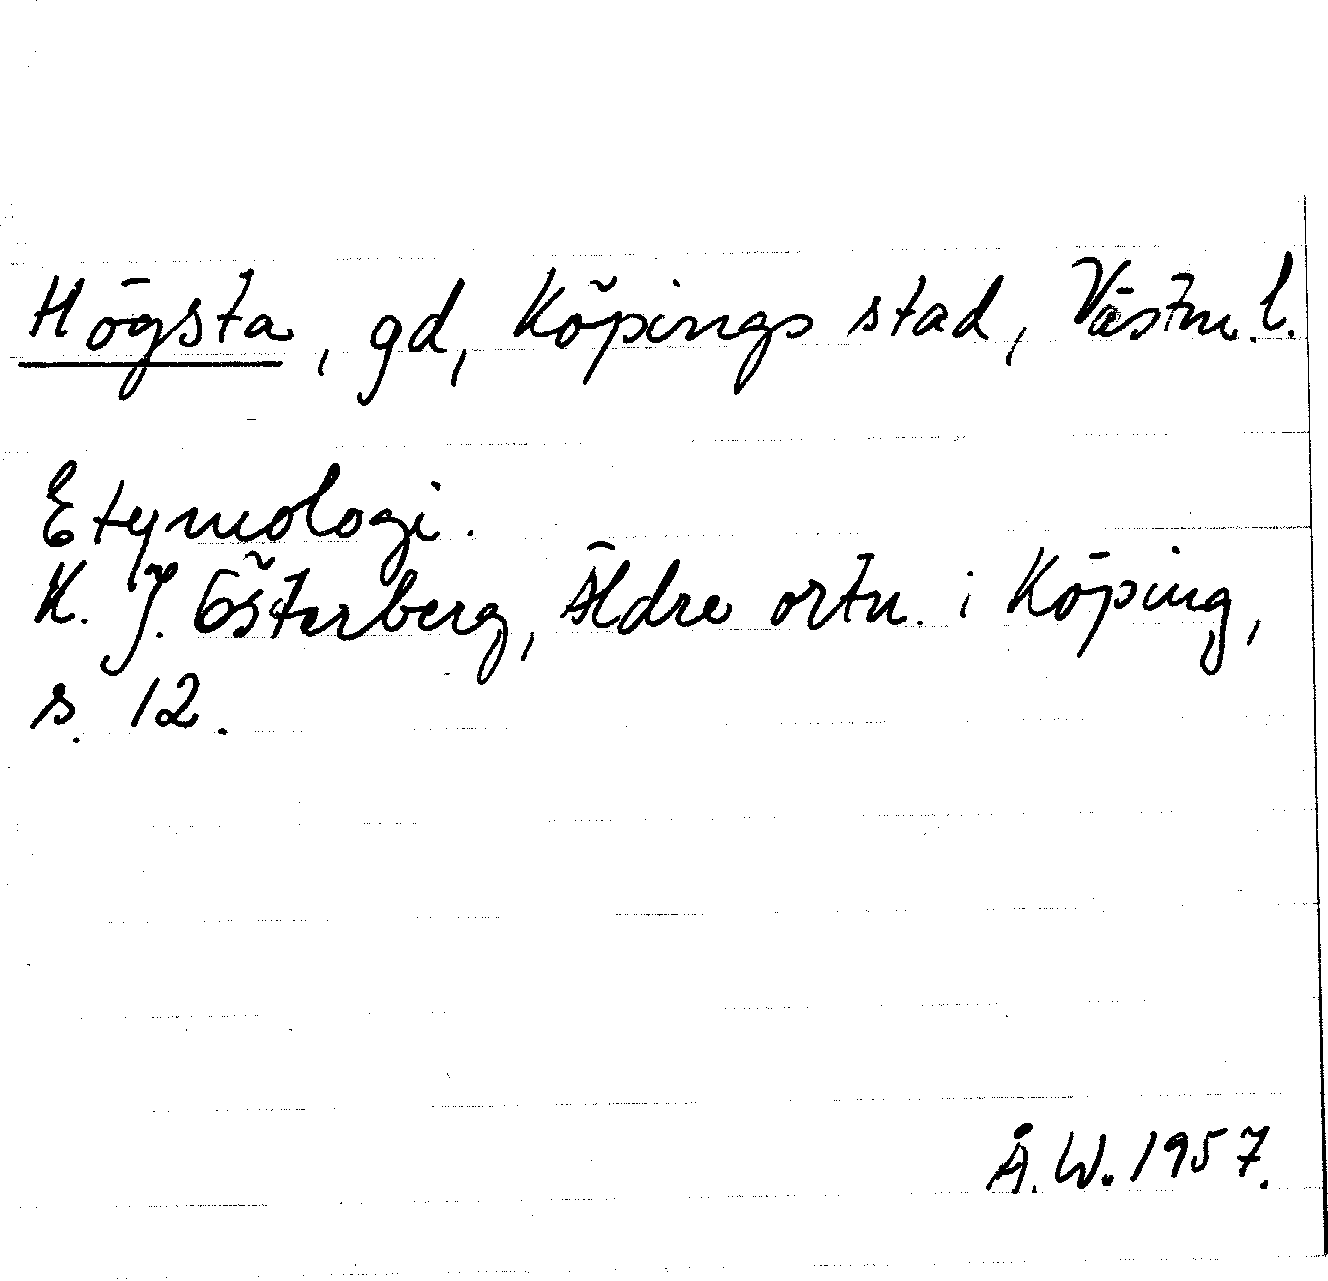 Högsta, gd, Köpings stad, Västm. l.
Etymologi.
K. J. Österberg, Äldre ortn. i Köping,
s. 12.
Å. W. 1957.